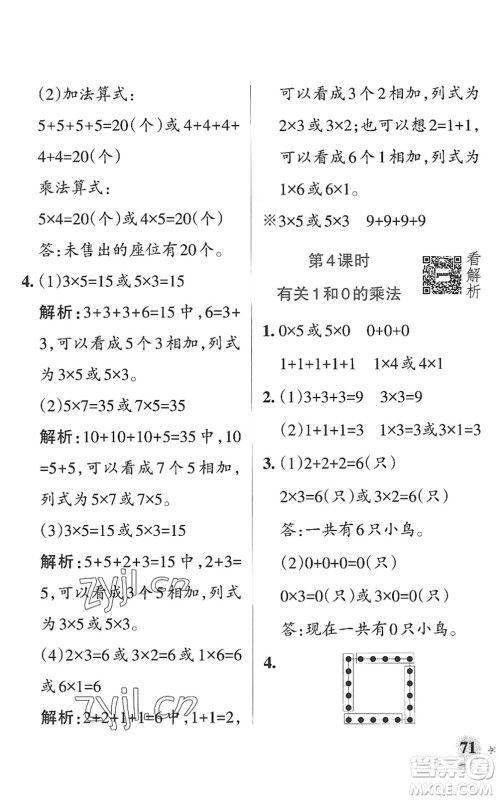 (2)加法算式:
5+5+5+5=20(个)或4+4+4+
4+4=20(个)
乘法算式:
5×4=20(个)或4×5=20(个)
答:未售出的座位有20个。
4. (1)3×5=15或5×3=15
解析:3+3+3+6=15中,6=3+
3,可以看成5个3相加,列式
为3×5或5×3。
(2)5×7=35或7×5=35
解析:10+10+10+5=35中,10
=5+5,可以看成7个5相加,
列式为5×7或7×5。
(3)3×5=15或5×3=15
解析:5+5+2+3=15中,2+3=
5,可以看成3个5相加,列式
为3×5或5×3。
(4)2×3=6或3×2=6或1×6=6或
6×1=6
解析:2+2+1+1=6中,1+1=2,
可以看成3个2相加,列式为
2×3或3×2;也可以想2=1+1,
可以看成6个1相加,列式为
1×6或6×1。
※3×5或5×3 9+9+9+9
第4课时
有关1和0的乘法
看解析
1. 0×5或5×0 0+0+0
1+1+1+1 1×4或4×1
2. (1)3+3+3=9 3×3=9
(2)1+1+1=3 1×3=3或3×1=3
3. (1)2+2+2=6(只)
2×3=6(只)或3×2=6(只)
答:一共有6只小鸟。
(2)0+0+0=0(只)
0×3=0(只)或3×0=0(只)
答:现在一共有0只小鸟。
4.
71
zyjl.cn
zyjl.cn
答案圈
MXQE.COM